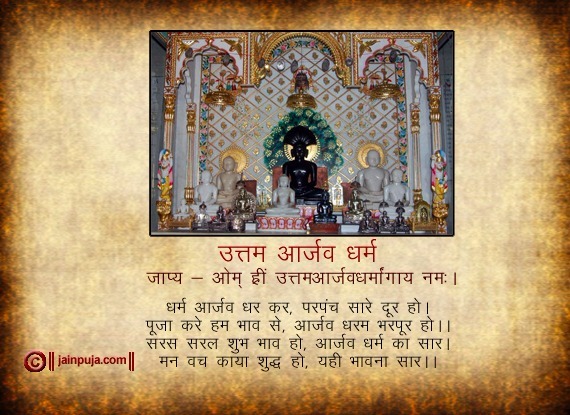 उत्तम आर्जव धर्म
जाप्य – ओम् ह्रीं उत्तमआर्जवधर्मांगाय नमः।
धर्म आर्जव धर कर, परपंच सारे दूर हो।
पूजा करे हम भाव से, आर्जव धरम भरपूर हो।।
सरस सरल शुभ भाव हो, आर्जव धर्म का सार।
मन वच काया शुद्ध हो, यही भावना सार।।
© || jainpuja.com ||